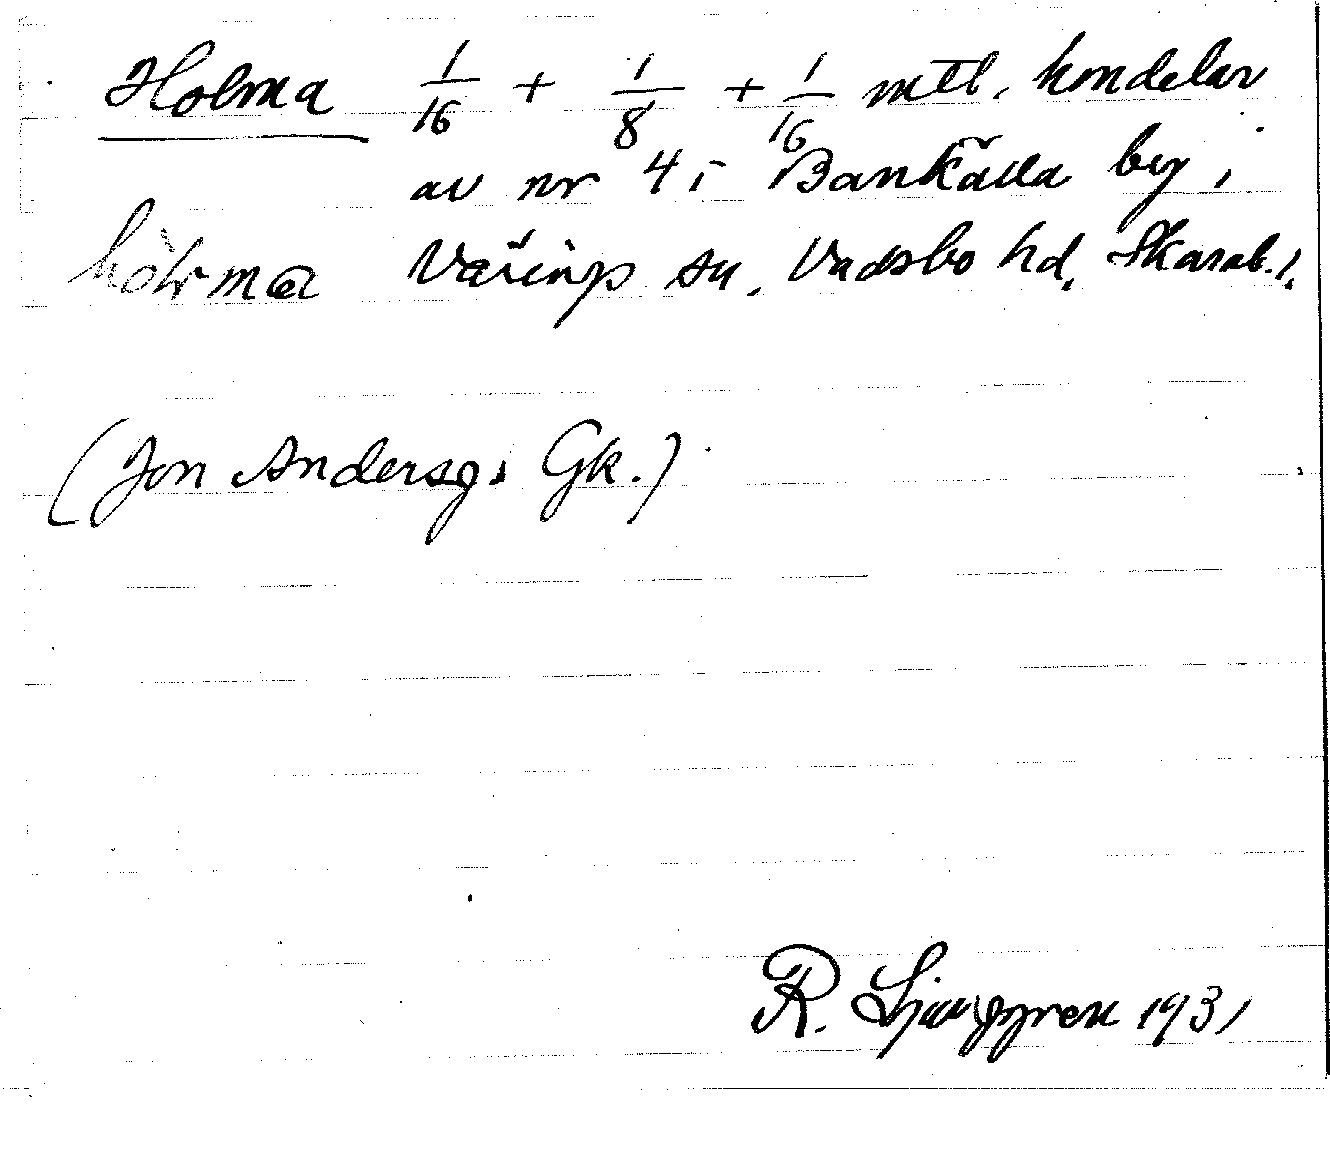 Holma 1/16 + 1/8 + 1/16 mtl. hemdelar
av nr 4 i Bankälla by i
hòlma Värings sn, Vadsbo hd, Skarab. l.
(Jon Andersg. Gk.)
R. Ljunggren 1931